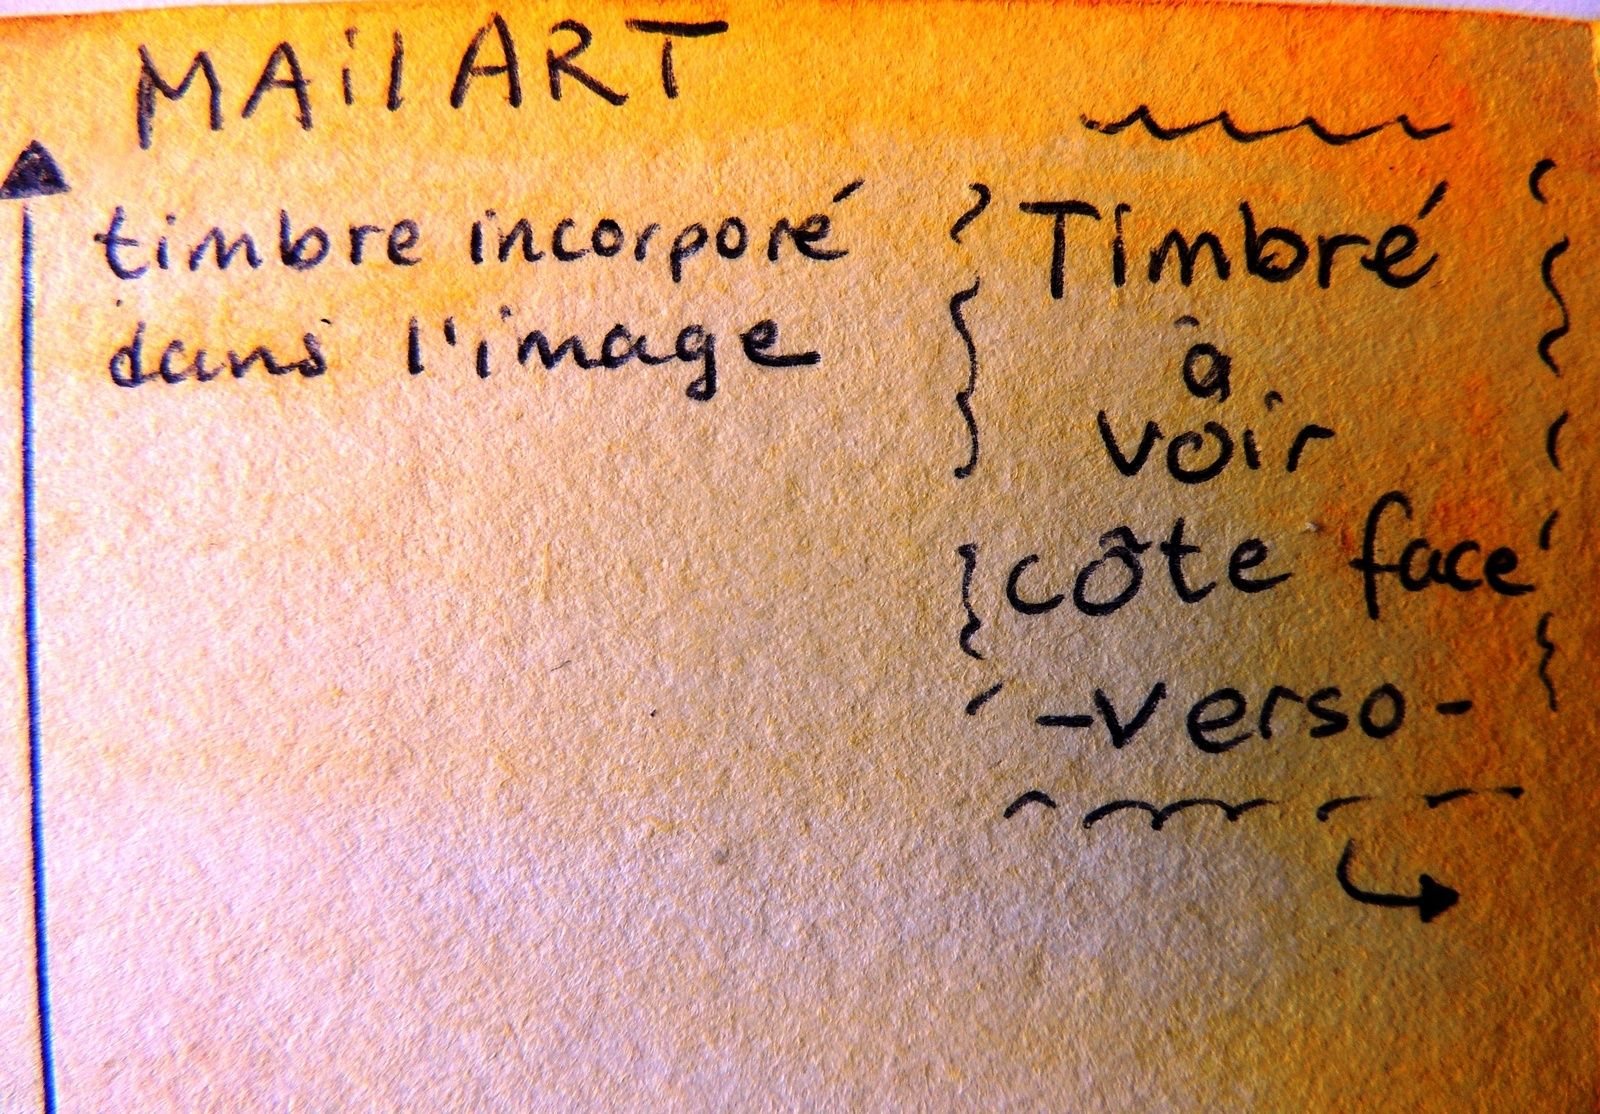 MAil ART
timbre incorporé
dans l'image
Timbré
à
voir
côte face
-verso-